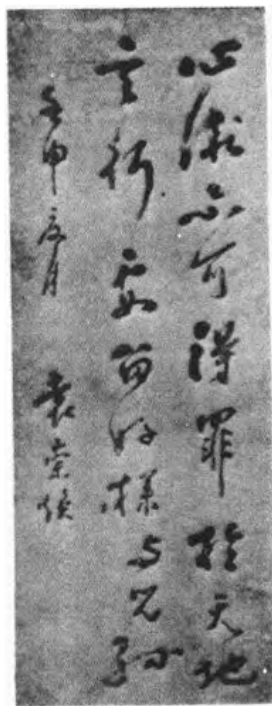 心術不可得罪於天地
言行要留好樣與兒孫
壬申處月 袁崇煥